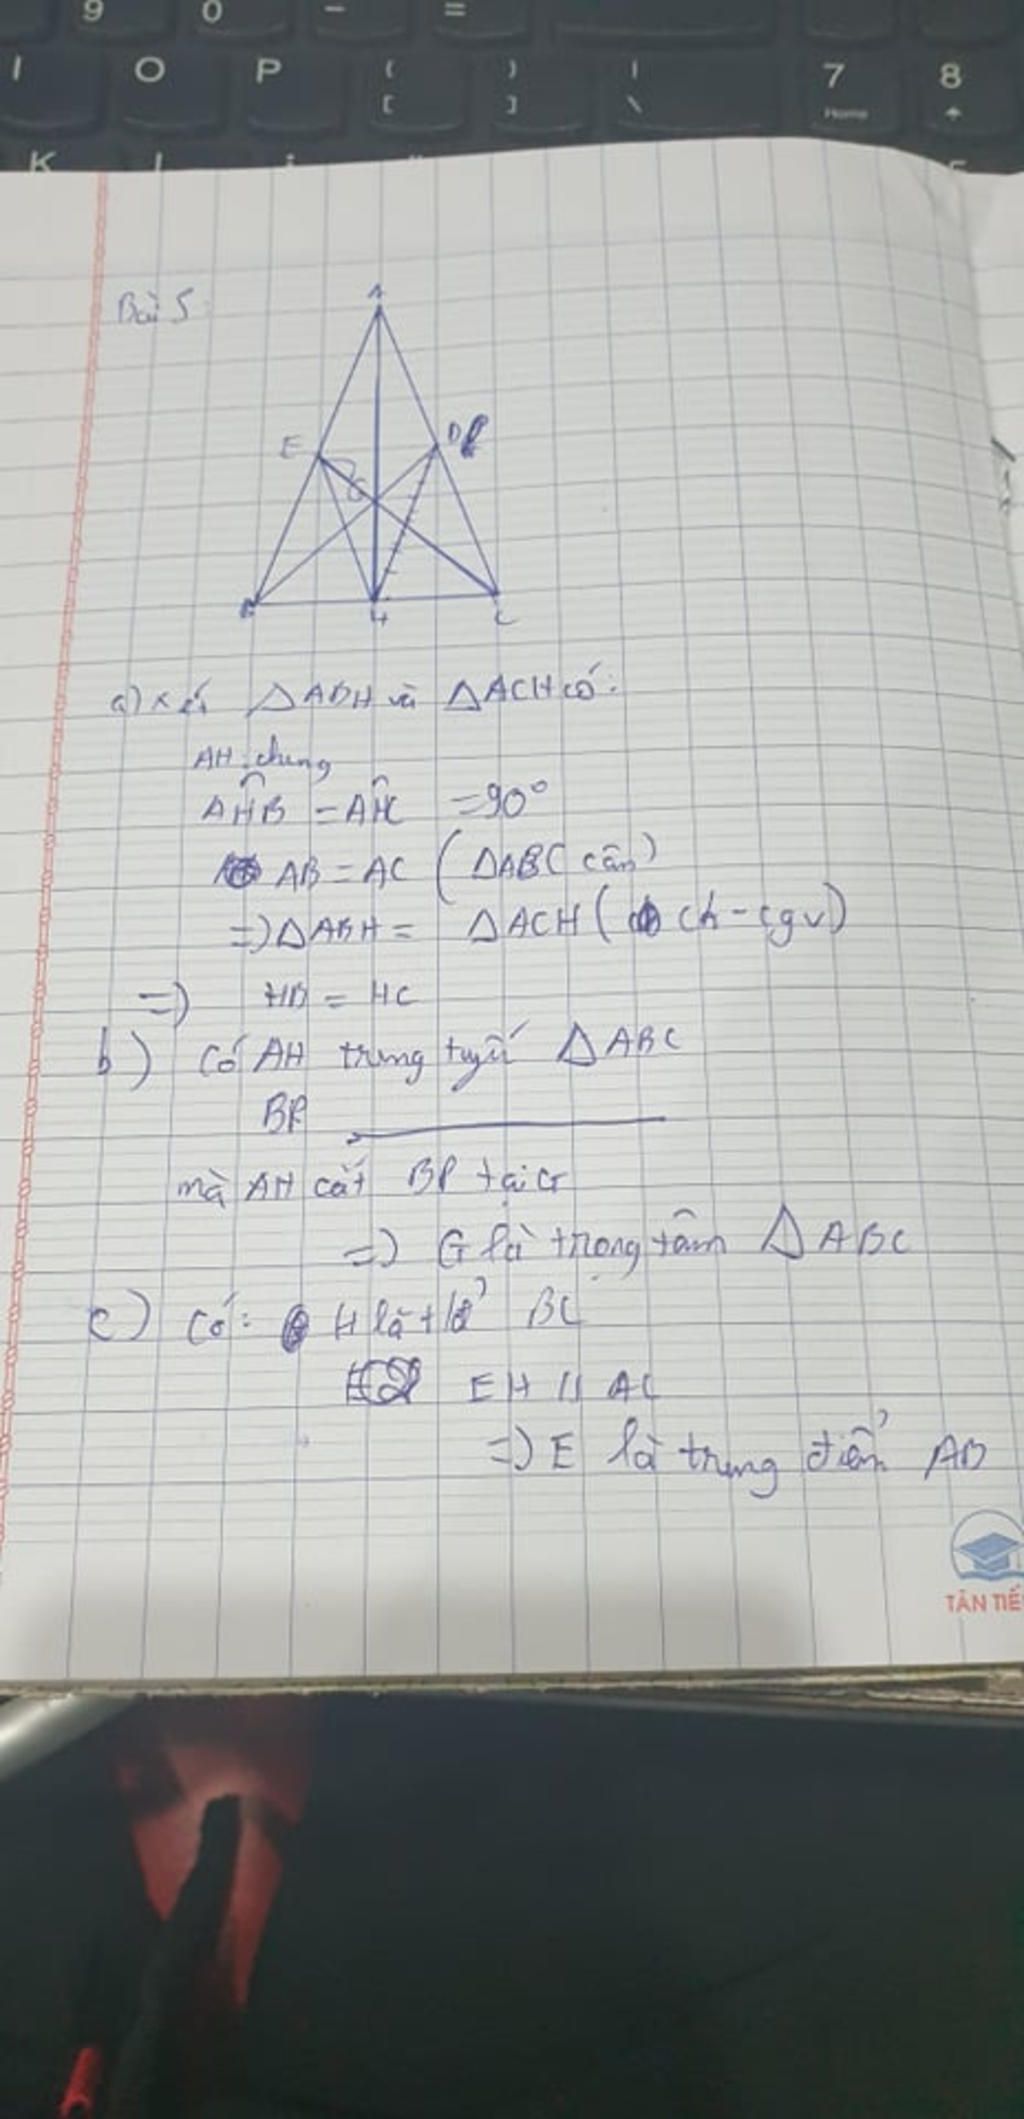 9 0 - =
I O P { [ } ] | \ 7 Home 8
K
Bài 5
A
E D
G
B H C
a) Xét △ABH và △ACH có:
AH chung
AHB = AHC = 90°
AB = AC (△ABC cân)
=> △ABH = △ACH (ch - cgv)
=> HB = HC
b) Có AH trung tuyến △ABC
BP
mà AH cắt BP tại G
=> G là trọng tâm △ABC
c) Có: H là BC
EH // AC
=> E là trung điểm AB
TÂN TIẾ